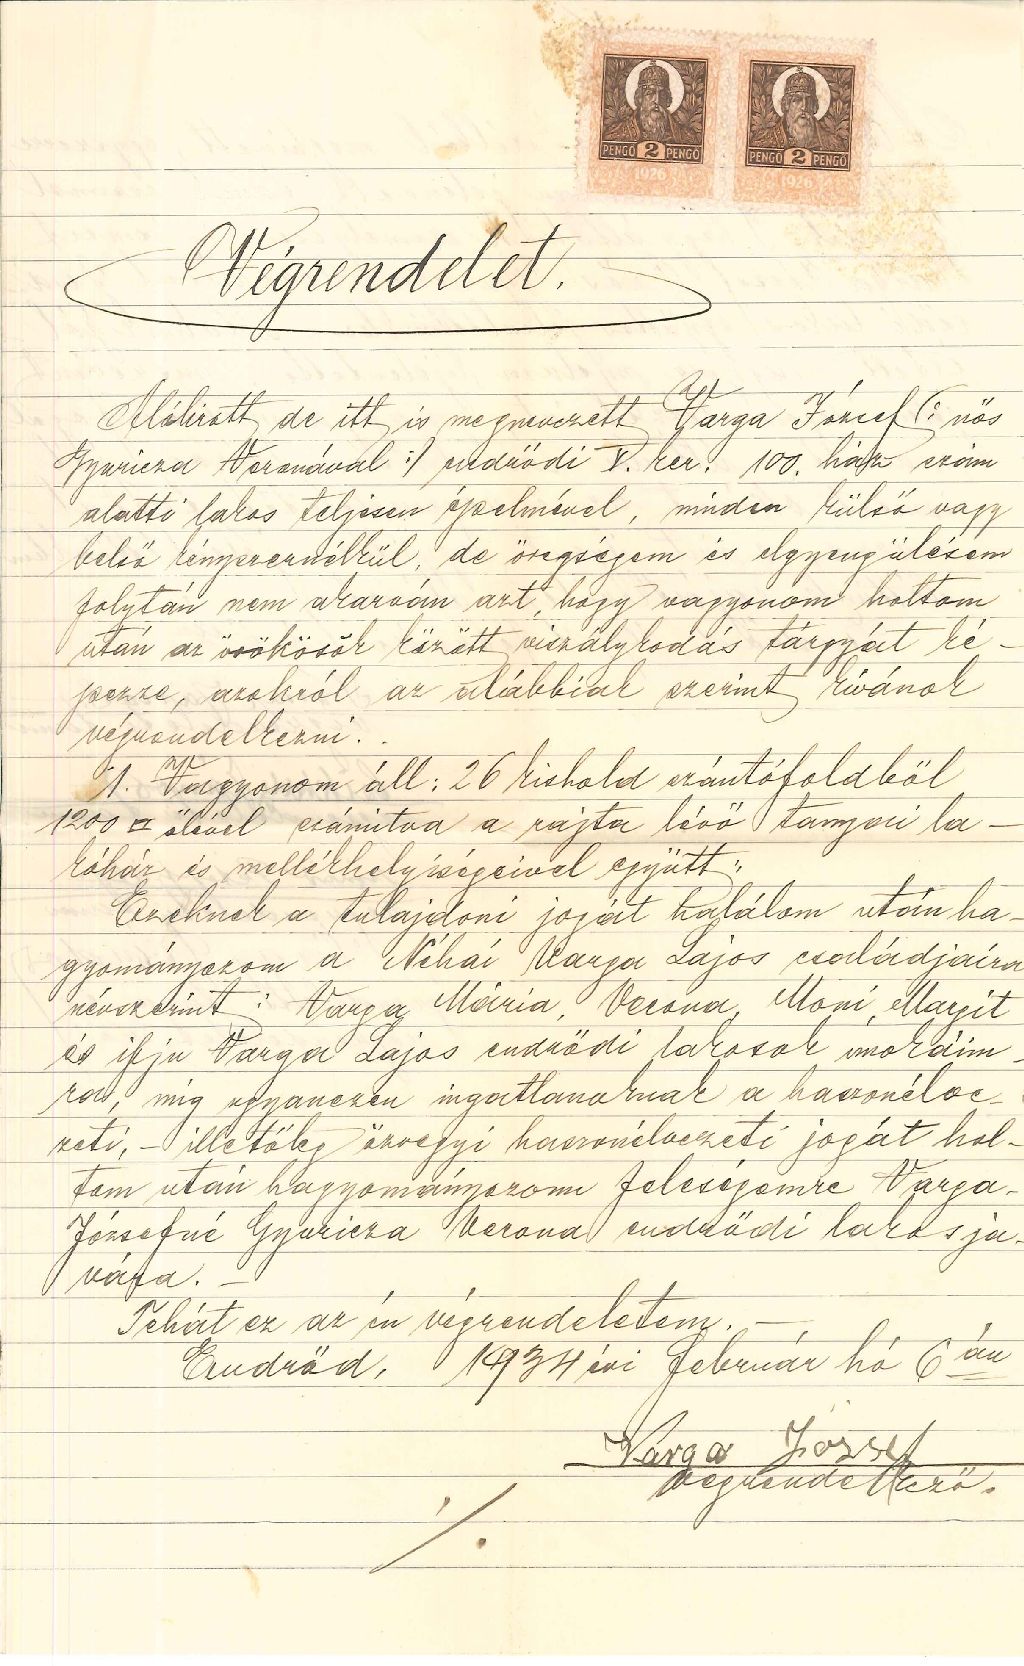 PENGŐ 2 PENGŐ PENGŐ 2 PENGŐ
1926 1926
Végrendelet.
Alólirott de itt is megnevezett Varga József (: nős
Gyuricza Veronával :) endrődi V. ker. 100. ház szám
alatti lakos teljesen épelmével, minden külső vagy
belső kényszernélkül, de öregségem és elgyengülésem
folytán nem akarván azt, hogy vagyonom holtom
után az örökösök között viszálykodás tárgyát ké-
pezze, azokról az alábbiak szerint kívánok
végrendelkezni.
1. Vagyonom áll: 26 kishold szántóföldből
1200 □ ölével számitva a rajta lévő tanyai la-
kóház és mellékhelyiségeivel együtt;
Ezeknek a tulajdoni jogát halálom után ha-
gyományozom a Néhai Varga Lajos családjaira
névszerint: Varga Mária, Verona, Moni, Margit
és ifju Varga Lajos endrődi lakosok unokáim-
ra, mig ugyanezen ingatlanoknak a haszonélve-
zeti, - illetőleg özvegyi haszonélvezeti jogát hol-
tom után hagyományozom feleségemre Varga-
Józsefné Gyuricza Verona endrődi lakos ja-
vára. -
Tehát ez az én végrendeletem. -
Endrőd, 1934 évi február hó 6 án
Varga József
végrendelkező.
./.